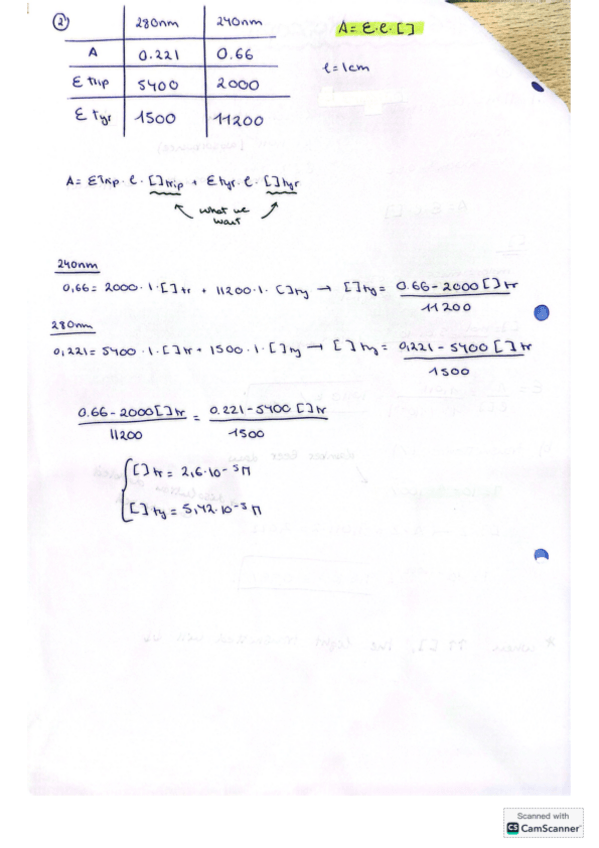 ② 280nm 240nm
A 0.221 0.66
ε trip 5400 2000
ε tyr 1500 11200
A = ε.e.[]
l = 1cm
A = εtrip · l · []trip + εtyr · l · []tyr
what we
want
240nm
0,66 = 2000 · 1 · []tr + 11200 · 1 · []ty → []ty = 0.66 - 2000 []tr / 11200
280nm
0,221 = 5400 · 1 · []tr + 1500 · 1 · []ty → []ty = 0,221 - 5400 []tr / 1500
0.66 - 2000[]tr / 11200 = 0.221 - 5400 []tr / 1500
[]tr = 2,6·10⁻⁵M
[]ty = 5,42·10⁻⁵M
Scanned with
CS CamScanner